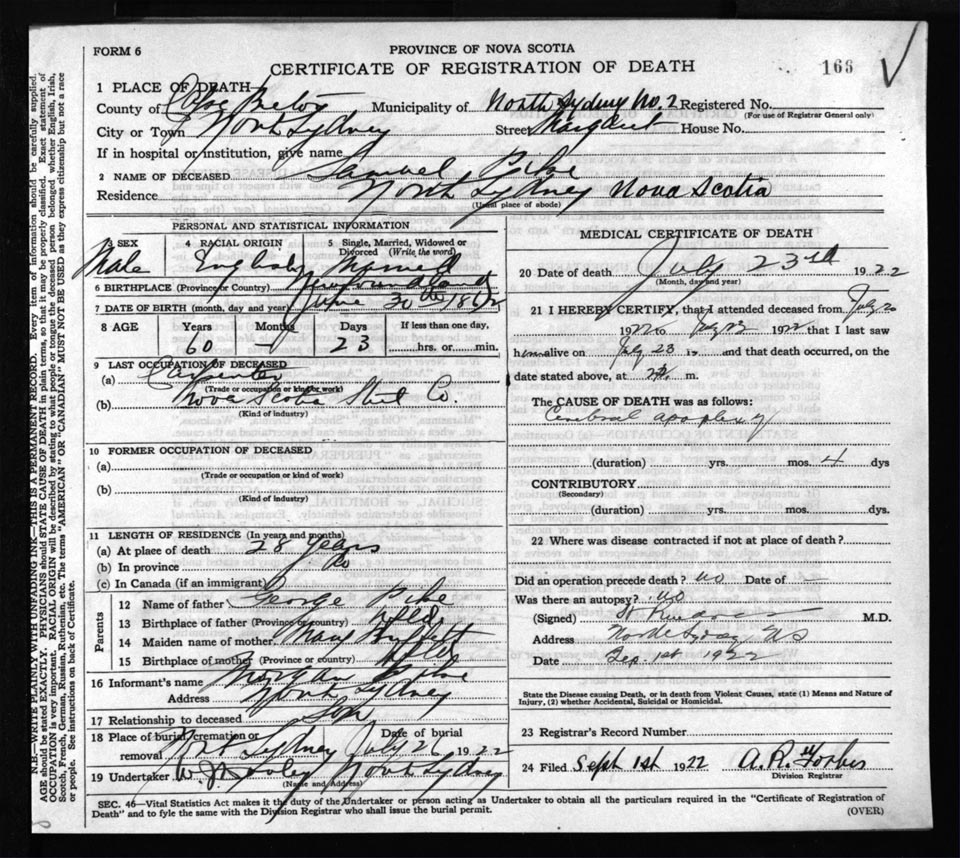 FORM 6
PROVINCE OF NOVA SCOTIA
CERTIFICATE OF REGISTRATION OF DEATH
166
1 PLACE OF DEATH
County of Cape Breton Municipality of North Sydney No. 2 Registered No.
(For use of Registrar General only)
City or Town North Sydney Street Margaret House No.
If in hospital or institution, give name
2 NAME OF DECEASED Samuel Pike
Residence North Sydney Nova Scotia
(Usual place of abode)
PERSONAL AND STATISTICAL INFORMATION
3 SEX 4 RACIAL ORIGIN 5 Single, Married, Widowed or Divorced (Write the word)
Male English Married
6 BIRTHPLACE (Province or Country) Newfoundland
7 DATE OF BIRTH (month, day and year) June 30th 1862
8 AGE Years Months Days If less than one day,
60 — 23 hrs. or min.
9 LAST OCCUPATION OF DECEASED
(a) Carpenter
(Trade or occupation or kind of work)
(b) Nova Scotia Steel Co.
(Kind of industry)
10 FORMER OCCUPATION OF DECEASED
(a)
(Trade or occupation or kind of work)
(b)
(Kind of industry)
11 LENGTH OF RESIDENCE (In years and months)
(a) At place of death 28 years
(b) In province Do
(c) In Canada (if an immigrant)
Parents
12 Name of father George Pike
13 Birthplace of father (Province or country) Nfld
14 Maiden name of mother Mary
15 Birthplace of mother (Province or country) Nfld
16 Informant's name Morgan Pike
Address North Sydney
17 Relationship to deceased Son
18 Place of burial, cremation or removal Date of burial
North Sydney July 26 1922
19 Undertaker North Sydney
(Name and Address)
MEDICAL CERTIFICATE OF DEATH
20 Date of death July 23rd 1922
(Month, day and year)
21 I HEREBY CERTIFY, that I attended deceased from July 20
1922 to July 23 1922 that I last saw
him alive on July 23 and that death occurred, on the
date stated above, at m.
The CAUSE OF DEATH was as follows:
Cerebral apoplexy
(duration) yrs. mos. 4 dys
CONTRIBUTORY
(Secondary)
(duration) yrs. mos. dys.
22 Where was disease contracted if not at place of death?
Did an operation precede death? no Date of —
Was there an autopsy? no
(Signed) M.D.
Address North Sydney NS
Date Sep. 1st 1922
State the Disease causing Death, or in death from Violent Causes, state (1) Means and Nature of
Injury, (2) whether Accidental, Suicidal or Homicidal.
23 Registrar's Record Number
24 Filed Sept 1st 1922 A. R. Forbes
Division Registrar
SEC. 46—Vital Statistics Act makes it the duty of the Undertaker or person acting as Undertaker to obtain all the particulars required in the "Certificate of Registration of
Death" and to fyle the same with the Division Registrar who shall issue the burial permit.
(OVER)
N.B.—WRITE PLAINLY WITH UNFADING INK—THIS IS A PERMANENT RECORD. Every item of information should be carefully supplied.
AGE should be stated EXACTLY. PHYSICIANS should STATE CAUSE OF DEATH in plain terms, so that it may be properly classified. Exact statement of
OCCUPATION is very important. RACIAL ORIGIN will be described by stating to what people or tongue the deceased person belonged whether English, Irish,
Scotch, French, German, Russian, Ruthenian, etc. The terms "AMERICAN" OR "CANADIAN" MUST NOT BE USED as they express citizenship but not a race
or people. See instructions on back of Certificate.